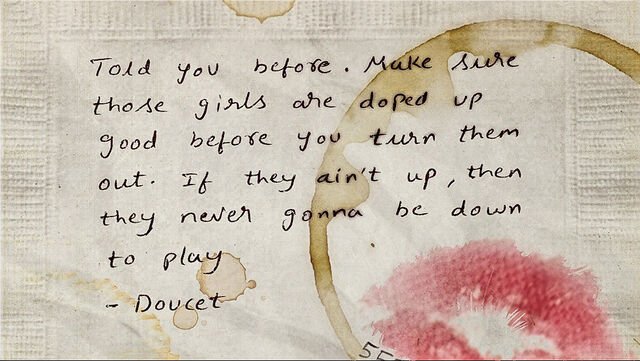 Told you before. Make sure
those girls are doped up
good before you turn them
out. If they ain't up, then
they never gonna be down
to play
- Doucet